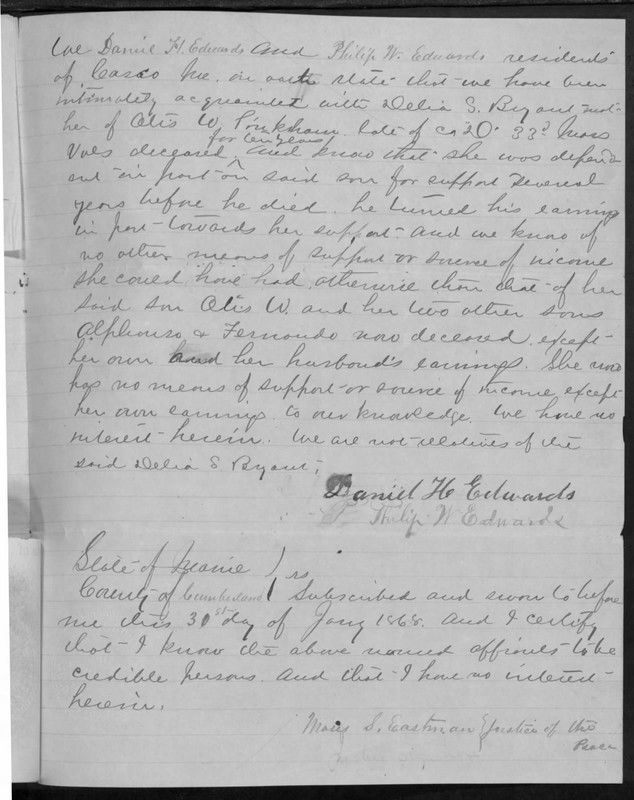 We Daniel H. Edwards and Philip W. Edwards residents
of Casco Me. on oath state that we have been
intimately acquainted with Delia S. Bryant mot-
her of Otis W. Pinkham late of Co "D" 33d Mass
for ten years
Vols deceased and know that she was depend
ent in part on said son for support several
years before he died. he turned his earnings
in part towards her support and we know of
no other means of support or source of income
she could have had otherwise than that of her
said son Otis W. and her two other sons
Alphonzo & Fernando now deceased except
her own and her husband's earnings. She now
has no means of support or source of income except
her own earnings to our knowledge. We have no
interest herein. We are not relatives of the
said Delia S Bryant.
Daniel H Edwards
Philip W Edwards
State of Maine ) ss
County of Cumberland ( Subscribed and sworn to before
me this 31st day of Jany 1868. and I certify
that I know the above named affiants to be
credible persons. and that I have no interest
herein.
S. Eastman Justice of the
Peace